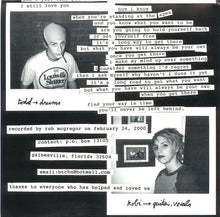 i still love you
now i know
when you're standing at the edge
and you know what you want to be
are you going to hold yourself back
or set yourself free
it's a long way to get there
but what you have will always be your own
when you get there
make my mind up over something
i consider second rate
then i ask myself why haven't i done it yet
it's a long road to get what you want
but what you have will always be your own
when you get there
find your way in time
you'll never be left behind.
Louisville Slugger
todd → drums
recorded by rob mcgregor on february 24, 2000
contact: p.o. box 13105
gainesville, florida 32604
email:btchn@hotmail.com
thanks to everyone who has helped and loved us
kobi → guitar, vocals